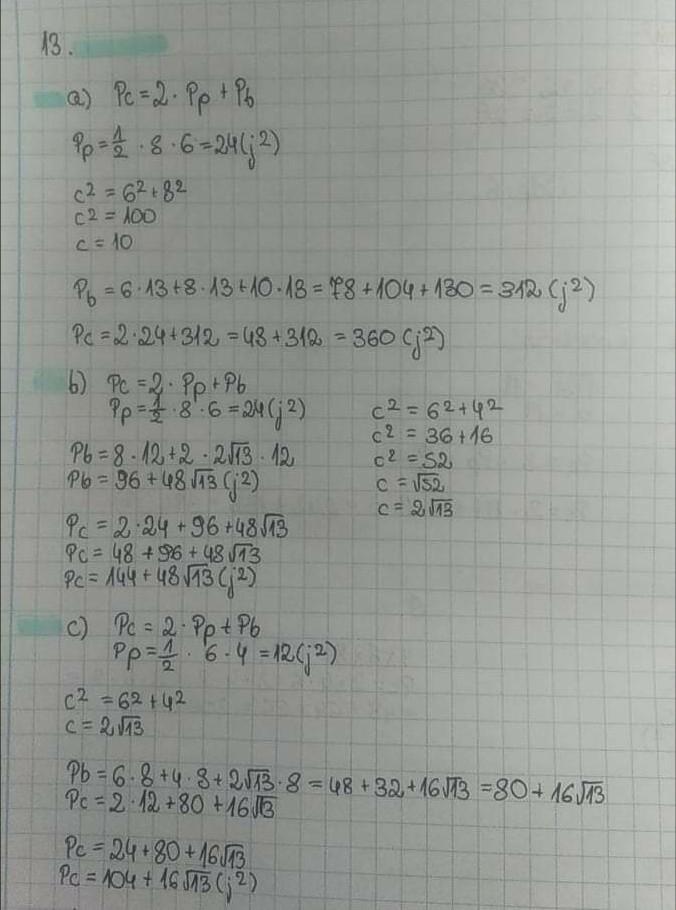 13.
a) Pc = 2 · Pp + Pb
Pp = 1/2 · 8 · 6 = 24 (j²)
c² = 6² + 8²
c² = 100
c = 10
Pb = 6 · 13 + 8 · 13 + 10 · 13 = 78 + 104 + 130 = 312 (j²)
Pc = 2 · 24 + 312 = 48 + 312 = 360 (j²)
b) Pc = 2 · Pp + Pb
Pp = 1/2 · 8 · 6 = 24 (j²)
Pb = 8 · 12 + 2 · 2√13 · 12
Pb = 96 + 48√13 (j²)
Pc = 2 · 24 + 96 + 48√13
Pc = 48 + 96 + 48√13
Pc = 144 + 48√13 (j²)
c² = 6² + 4²
c² = 36 + 16
c² = 52
c = √52
c = 2√13
c) Pc = 2 · Pp + Pb
Pp = 1/2 · 6 · 4 = 12 (j²)
c² = 6² + 4²
c = 2√13
Pb = 6 · 8 + 4 · 8 + 2√13 · 8 = 48 + 32 + 16√13 = 80 + 16√13
Pc = 2 · 12 + 80 + 16√13
Pc = 24 + 80 + 16√13
Pc = 104 + 16√13 (j²)